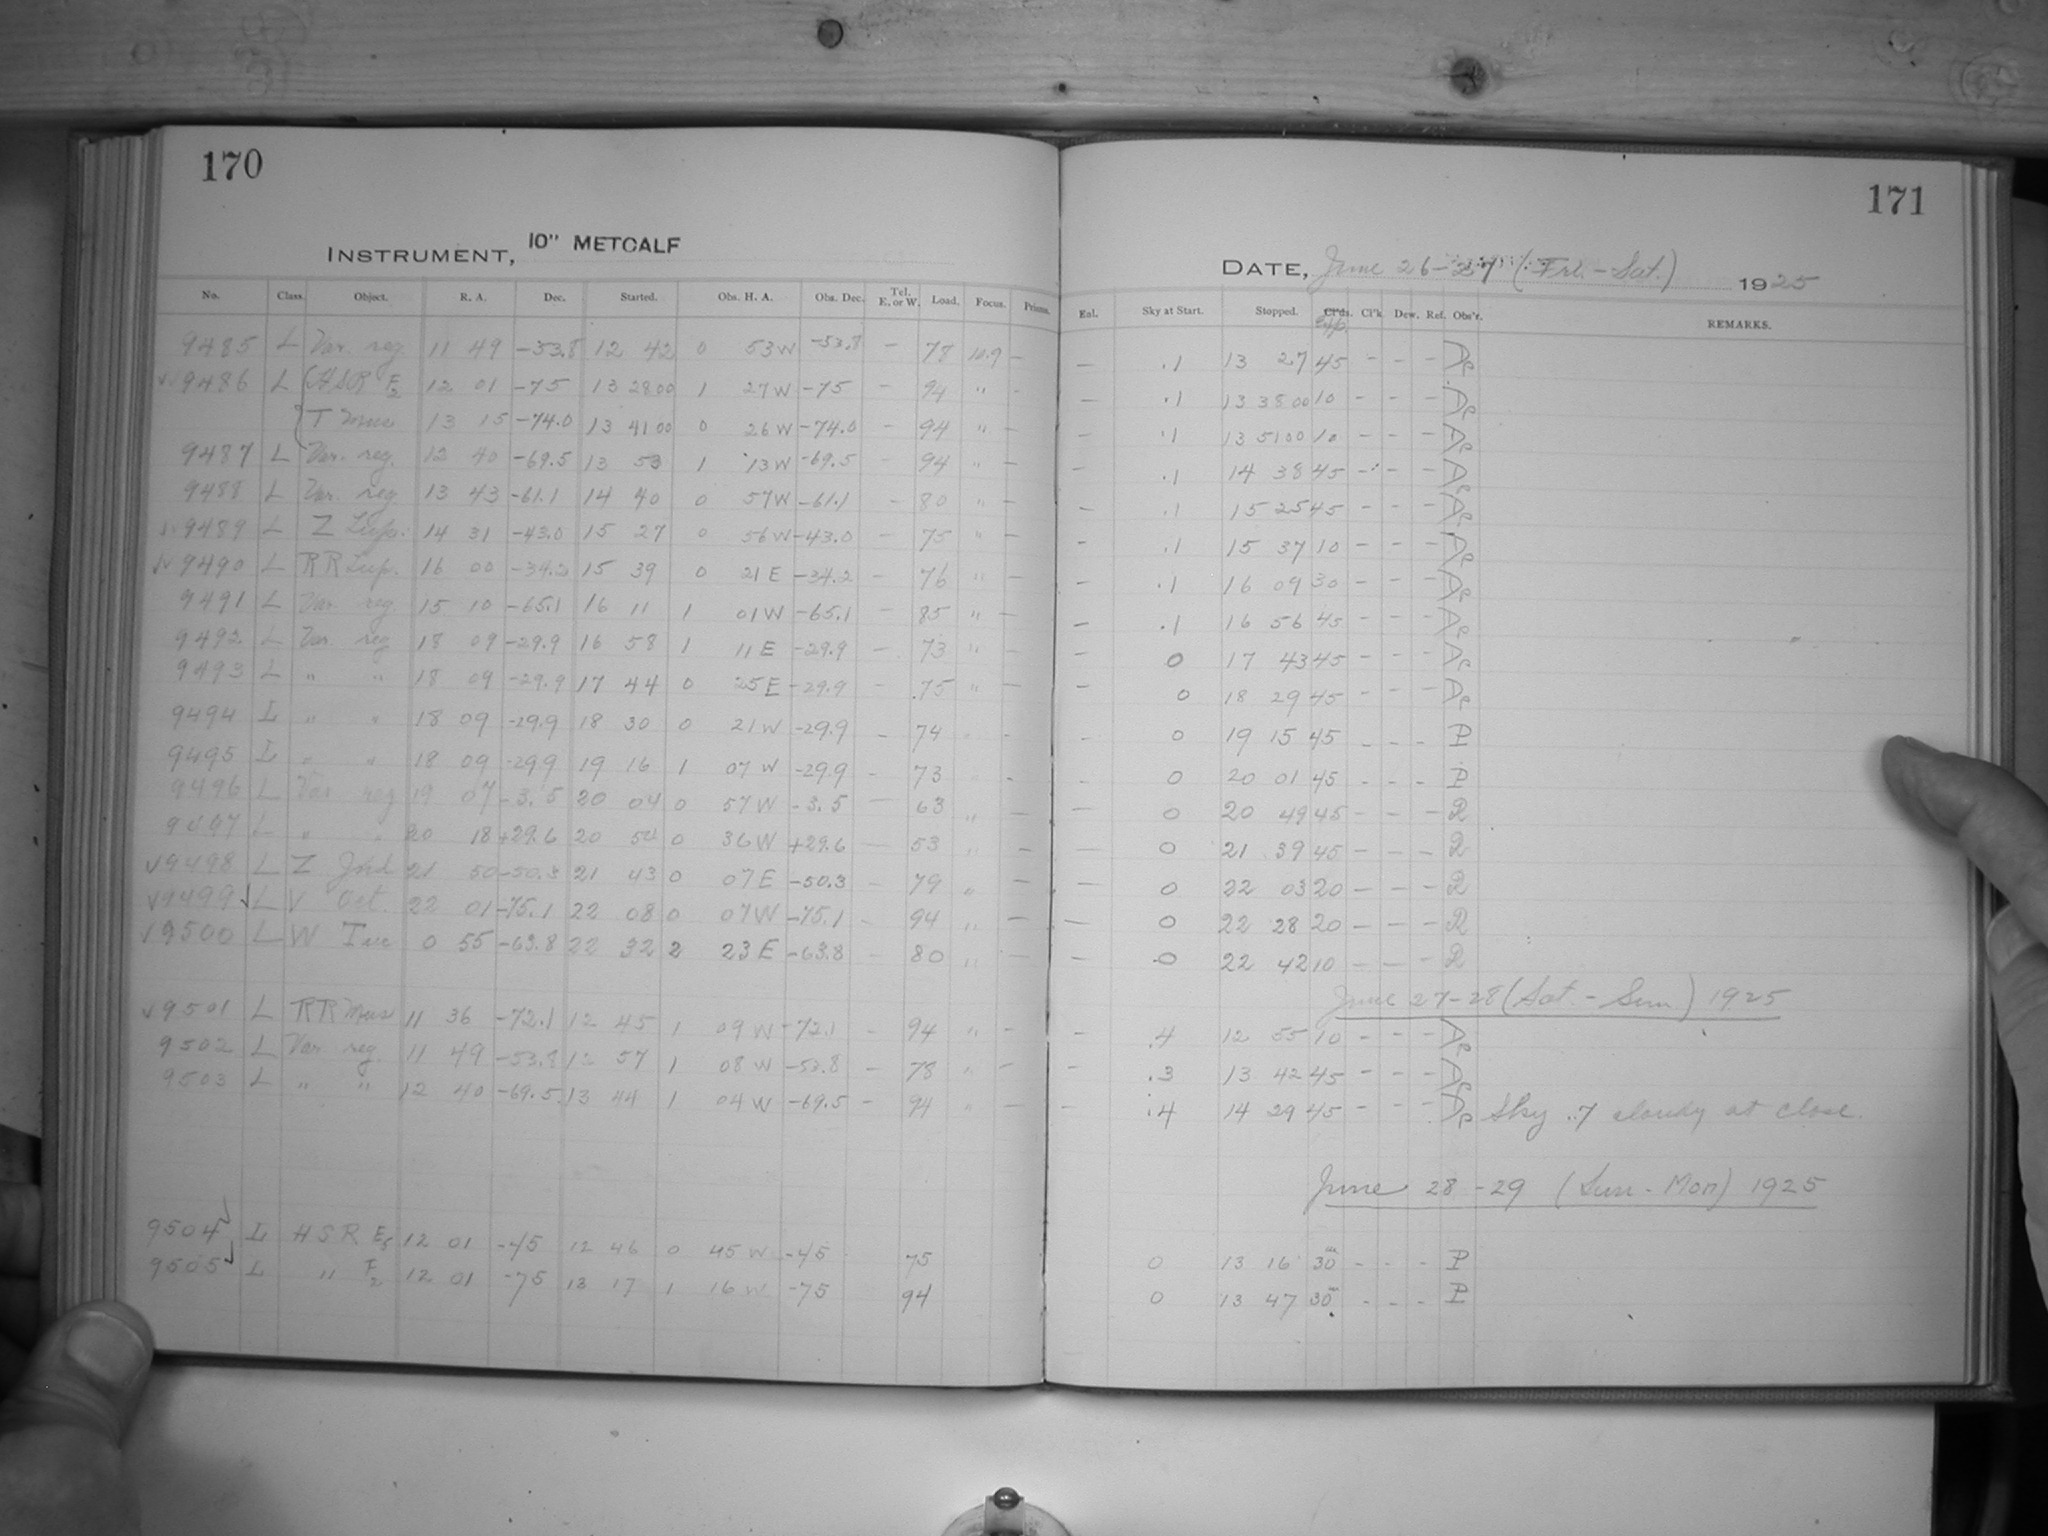 170
INSTRUMENT, 10" METCALF
No. Class. Object. R. A. Dec. Started. Obs. H. A. Obs. Dec. Tel. E. or W. Load. Focus. Prisms.
9485 L Var. reg. 11 49 -53.8 12 42 0 53 W -53.8 - 78 10.9 -
√√ 9486 L (HSR F2 12 01 -75 13 28 00 1 27 W -75 - 94 " -
T Mus 13 15 -74.0 13 41 00 0 26 W -74.0 - 94 " -
9487 L Var. reg. 12 40 -69.5 13 53 1 13 W -69.5 - 94 " -
9488 L Var. reg. 13 43 -61.1 14 40 0 57 W -61.1 - 80 " -
9489 L Z Lup. 14 31 -43.0 15 27 0 56 W -43.0 - 75 " -
9490 L RR Lup. 16 00 -34.2 15 39 0 21 E -34.2 - 76 " -
9491 L Var. reg. 15 10 -65.1 16 11 1 01 W -65.1 - 85 " -
9492 L Var. reg 18 09 -29.9 16 58 1 11 E -29.9 - 73 " -
9493 L " " 18 09 -29.9 17 44 0 25 E -29.9 - 75 " -
9494 L " " 18 09 -29.9 18 30 0 21 W -29.9 - 74 " -
9495 L " " 18 09 -29.9 19 16 1 07 W -29.9 - 73 " -
9496 L Var reg 19 07 -3.5 20 04 0 57 W -3.5 - 63 " -
9497 L " " 20 18 +29.6 20 54 0 36 W +29.6 - 53 " -
√ 9498 L Z Ind 21 50 -50.3 21 43 0 07 E -50.3 - 79 " -
√ 9499 √ L V Oct. 22 01 -75.1 22 08 0 07 W -75.1 - 94 " -
√ 9500 L W Tuc 0 55 -63.8 22 32 2 23 E -63.8 - 80 " -
√ 9501 L RR Mus 11 36 -72.1 12 45 1 09 W -72.1 - 94 " -
9502 L Var reg. 11 49 -53.8 12 57 1 08 W -53.8 - 78 " -
9503 L " " 12 40 -69.5 13 44 1 04 W -69.5 - 94 " -
9504 √ L HSR E5 12 01 -45 12 46 0 45 W -45 75
9505 √ L " F2 12 01 -75 13 17 1 16 W -75 94
171
DATE, June 26-27 (Fri. - Sat.) 1925
Enl. Sky at Start. Stopped. Cl'ds. Exp. Cl'k Dew. Ref. Obs'r. REMARKS.
- .1 13 27 45 - - - Ae
- .1 13 38 00 10 - - - Ae
- .1 13 51 00 10 - - - Ae
- .1 14 38 45 - - - Ae
- .1 15 25 45 - - - Ae
- .1 15 37 10 - - - Ae
- .1 16 09 30 - - - Ae
- .1 16 56 45 - - - Ae
- 0 17 43 45 - - - Ae
- 0 18 29 45 - - - Ae
- 0 19 15 45 - - - P
- 0 20 01 45 - - - P
- 0 20 49 45 - - - R
- 0 21 39 45 - - - R
- 0 22 03 20 - - - R
- 0 22 28 20 - - - R
- 0 22 42 10 - - - R
June 27-28 (Sat. - Sun) 1925
- .4 12 55 10 - - - Ae
- .3 13 42 45 - - - Ae
- .4 14 29 45 - - - Ae Sky .7 cloudy at close.
June 28-29 (Sun - Mon) 1925
0 13 16 30m - - - P
0 13 47 30m - - - P